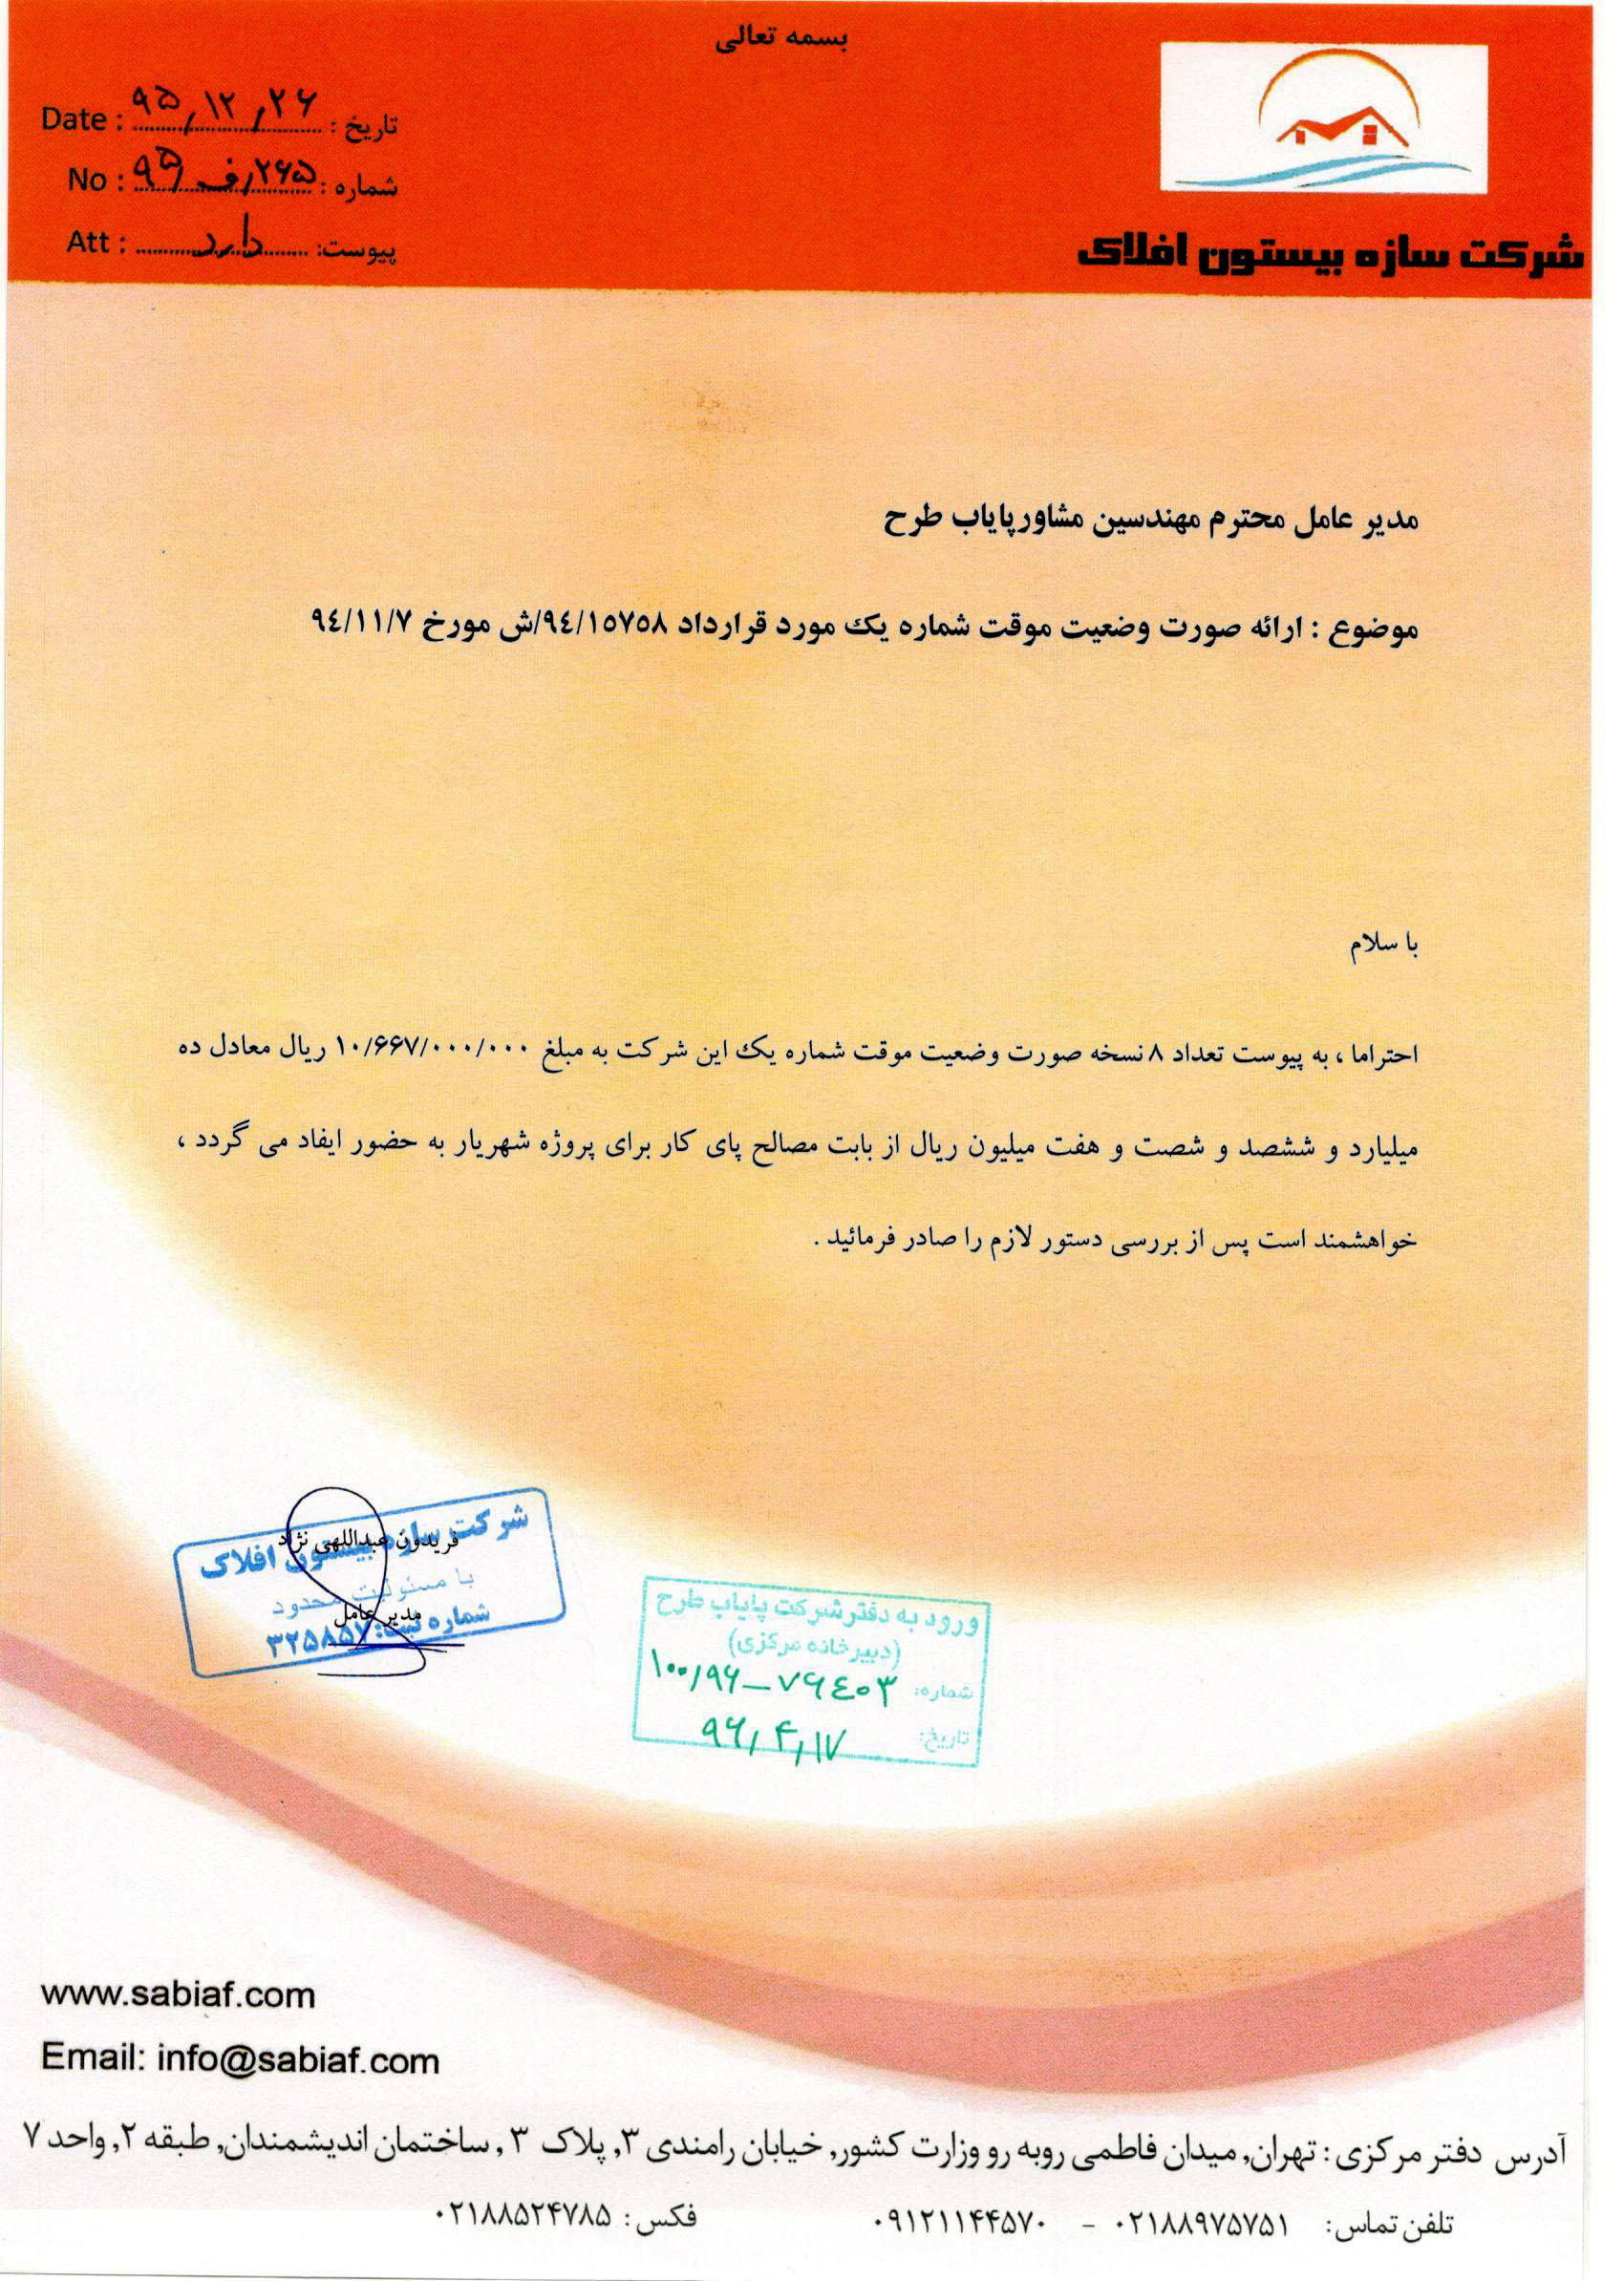 بسمه تعالی
تاریخ : ۹۵/۱۲/۲۶ : Date
شماره : ۲۶۵/ف ۹۵ : No
پیوست: دارد : Att
شرکت سازه بیستون افلاک
مدیر عامل محترم مهندسین مشاورپایاب طرح
موضوع : ارائه صورت وضعیت موقت شماره یک مورد قرارداد ۹٤/۱٥۷٥۸/ش مورخ ۹٤/۱۱/۷
با سلام
احتراما ، به پیوست تعداد ۸ نسخه صورت وضعیت موقت شماره یک این شرکت به مبلغ ۱۰/۶۶۷/۰۰۰/۰۰۰ ریال معادل ده
میلیارد و ششصد و شصت و هفت میلیون ریال از بابت مصالح پای کار برای پروژه شهریار به حضور ایفاد می گردد ،
خواهشمند است پس از بررسی دستور لازم را صادر فرمائید .
فریدون عبداللهی نژاد
مدیر عامل
شرکت سازه بیستون افلاک
با مسئولیت محدود
شماره ثبت: ۳۲۵۸۵۷
ورود به دفتر شرکت پایاب طرح
(دبیرخانه مرکزی)
شماره: ۱۰۰/۹۶-۷۶٤۰۳
تاریخ: ۹۶/۴/۱۷
www.sabiaf.com
Email: info@sabiaf.com
آدرس دفتر مرکزی : تهران, میدان فاطمی روبه رو وزارت کشور, خیابان رامندی ۳, پلاک ۳ , ساختمان اندیشمندان, طبقه ۲, واحد ۷
تلفن تماس: ۰۲۱۸۸۹۷۵۷۵۱ - ۰۹۱۲۱۱۴۴۵۷۰ فکس : ۰۲۱۸۸۵۲۴۷۸۵